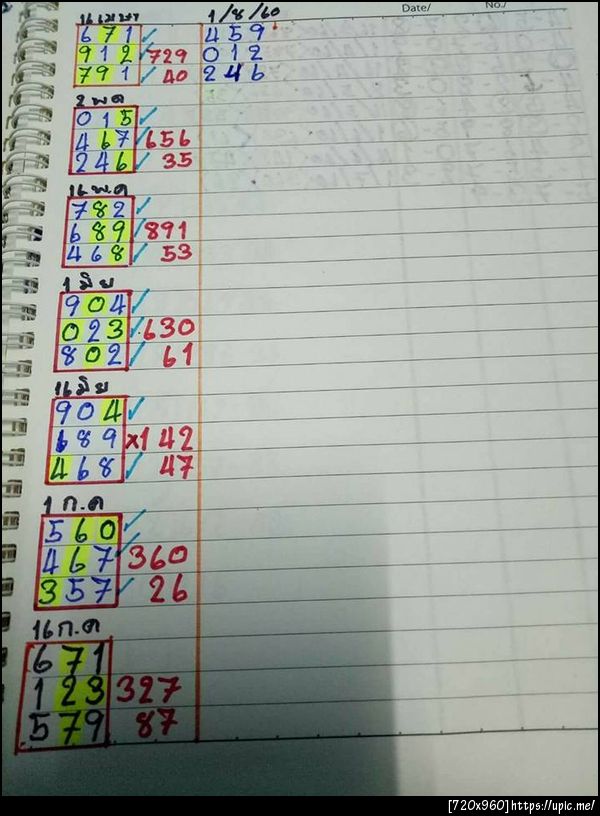 Date/ No./
16 เมษา 1/8/60
671 459
912 729 012
791 40 246
2 พ.ค
015
467 656
246 35
16 พ.ค
782
689 891
468 53
1 มิย
904
023 630
802 61
16 มิย
904
689 x142
468 47
1 ก.ค
560
467 360
357 26
16 ก.ค
671
123 327
579 87
[720x960] https://upic.me/